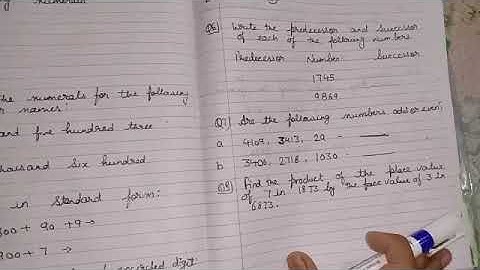 the numerals for the following
names:
and five hundred three
thousand six hundred
in standard form:
300 + 90 + 9 →
900 + 7 →
Q6) Write the predecessor and successor
of each of the following numbers
Predecessor Number Successor
1745
9869
Q7) Are the following numbers odd or even?
a 4103, 3413, 29 -
b 3406, 2718, 1030
Q8) Find the product of the place value
of 7 in 1873 by the face value of 3 in
6873.